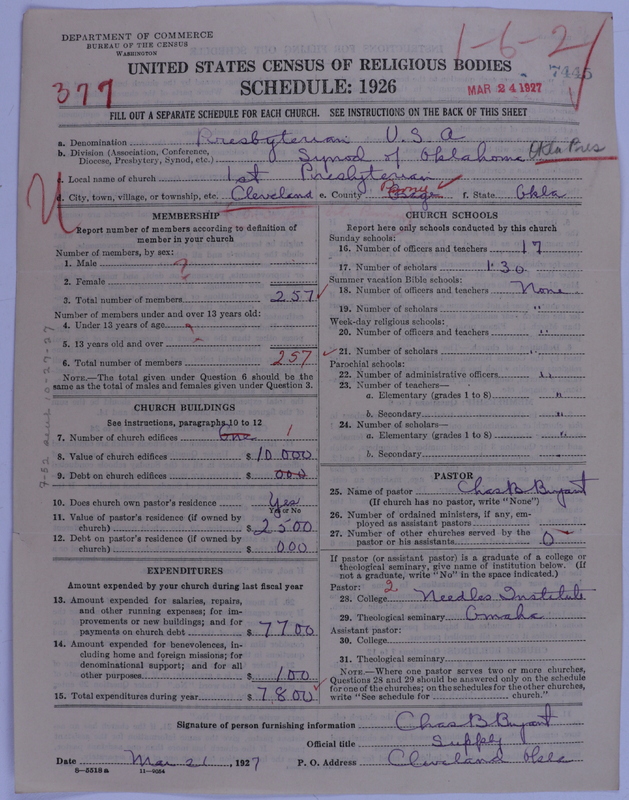 DEPARTMENT OF COMMERCE
BUREAU OF THE CENSUS
WASHINGTON
1-6-2
7445
UNITED STATES CENSUS OF RELIGIOUS BODIES
377
SCHEDULE: 1926
MAR 24 1927
FILL OUT A SEPARATE SCHEDULE FOR EACH CHURCH. SEE INSTRUCTIONS ON THE BACK OF THIS SHEET
a. Denomination Presbyterian U.S.A
b. Division (Association, Conference, Diocese, Presbytery, Synod, etc.) Synod of Oklahoma Okla Pres
c. Local name of church 1st Presbyterian
d. City, town, village, or township, etc. Cleveland e. County Osage f. State Okla
MEMBERSHIP
Report number of members according to definition of
member in your church
Number of members, by sex:
1. Male ?
2. Female
3. Total number of members 257
Number of members under and over 13 years old:
4. Under 13 years of age
5. 13 years old and over
6. Total number of members 257
NOTE.—The total given under Question 6 should be the
same as the total of males and females given under Question 3.
CHURCH BUILDINGS
See instructions, paragraphs 10 to 12
7. Number of church edifices One 1
8. Value of church edifices $ 10 000
9. Debt on church edifices $ 000
10. Does church own pastor's residence Yes
Yes or No
11. Value of pastor's residence (if owned by
church) $ 2500
12. Debt on pastor's residence (if owned by
church) $ 000
EXPENDITURES
Amount expended by your church during last fiscal year
13. Amount expended for salaries, repairs,
and other running expenses; for im-
provements or new buildings; and for
payments on church debt $ 7700
14. Amount expended for benevolences, in-
cluding home and foreign missions; for
denominational support; and for all
other purposes $ 100
15. Total expenditures during year $ 7800
CHURCH SCHOOLS
Report here only schools conducted by this church
Sunday schools:
16. Number of officers and teachers 17
17. Number of scholars 130
Summer vacation Bible schools:
18. Number of officers and teachers None
19. Number of scholars "
Week-day religious schools:
20. Number of officers and teachers "
21. Number of scholars "
Parochial schools:
22. Number of administrative officers "
23. Number of teachers—
a. Elementary (grades 1 to 8) "
b. Secondary "
24. Number of scholars—
a. Elementary (grades 1 to 8) "
b. Secondary "
PASTOR
25. Name of pastor Chas B Bryant
(If church has no pastor, write "None")
26. Number of ordained ministers, if any, em-
ployed as assistant pastors
27. Number of other churches served by the
pastor or his assistants 0
If pastor (or assistant pastor) is a graduate of a college or
theological seminary, give name of institution below. (If
not a graduate, write "No" in the space indicated.)
Pastor: 2
28. College Needles Institute
29. Theological seminary Omaha
Assistant pastor:
30. College
31. Theological seminary
NOTE.—Where one pastor serves two or more churches,
Questions 28 and 29 should be answered only on the schedule
for one of the churches; on the schedules for the other churches,
write "See schedule for church."
Signature of person furnishing information Chas B Bryant
Official title Supply
Date Mar 21, 1927 P. O. Address Cleveland Okla
8—5518a 11—9054